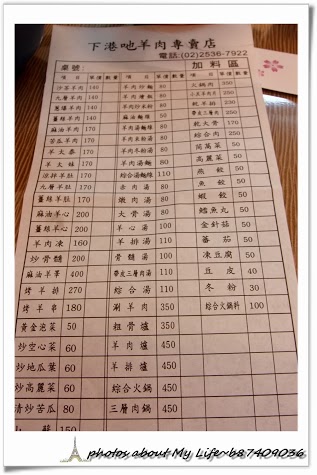 下港吔羊肉專賣店
電話:(02)2536-7922
桌號
加料區
項目 單價 數量 項目 單價 數量 項目 單價 數量
沙茶羊肉 140 羊肉炒麵 80 火鍋肉 350
九層羊肉 140 羊肉燴飯 80
蔥爆羊肉 140 羊肉炒米粉 80 乾羊排 230
薑絲羊肉 140 麻油麵線 50 帶皮三層肉 350
麻油羊肉 170 羊肉湯麵線 80 乾大骨 170
苦瓜羊肉 170 羊肉米粉湯 80 綜合肉 350
羊太泰 170 羊肉冬粉湯 80 茼萵菜 50
羊太妹 170 羊肉湯麵 80 高麗菜 50
涼拌羊肚 170 綜合湯麵線 80 燕餃 50
九層羊肚 170 赤肉湯 80 魚餃 50
薑絲羊肚 170 嫩肉湯 80 蝦餃 50
麻油羊心 200 大骨湯 80 鱈魚丸 50
薑絲羊心 200 羊心湯 80 金針菇 50
羊肉凍 160 羊排湯 80 蕃茄 50
炒骨髓 200 骨髓湯 80 凍豆腐 50
麻油羊睪 400 帶皮三層肉湯 110 豆皮 40
烤羊排 270 綜合湯 110 冬粉 30
烤羊串 180 涮羊肉 350 綜合火鍋料 100
黃金泡菜 50 粗骨爐 350
炒空心菜 60 羊肉爐 350
炒地瓜葉 60 羊排爐 450
炒高麗菜 60 綜合火鍋 450
清炒苦瓜 80 三層肉鍋 450
photos about My Life~b87409036